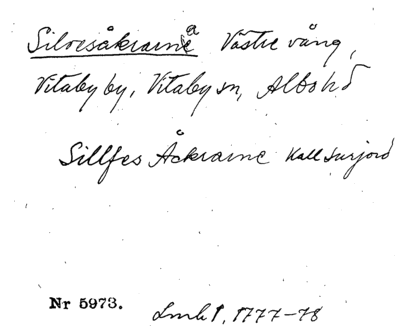 Silvesåkrarne a Västre vång,
Vitaby by, Vitaby sn, Albo hd
Sillfes Åckrarne Kall surjord
Nr 5973. Lmh 1, 1777-78